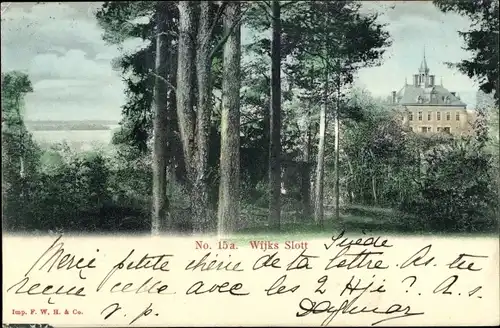 No. 15a. Wijks Slott
Suède
Merci petite chérie de ta lettre. As-tu
reçue celle avec les 2 Hje? A.s.
s.v.p.
Dagmar
Imp. F. W. H. & Co.